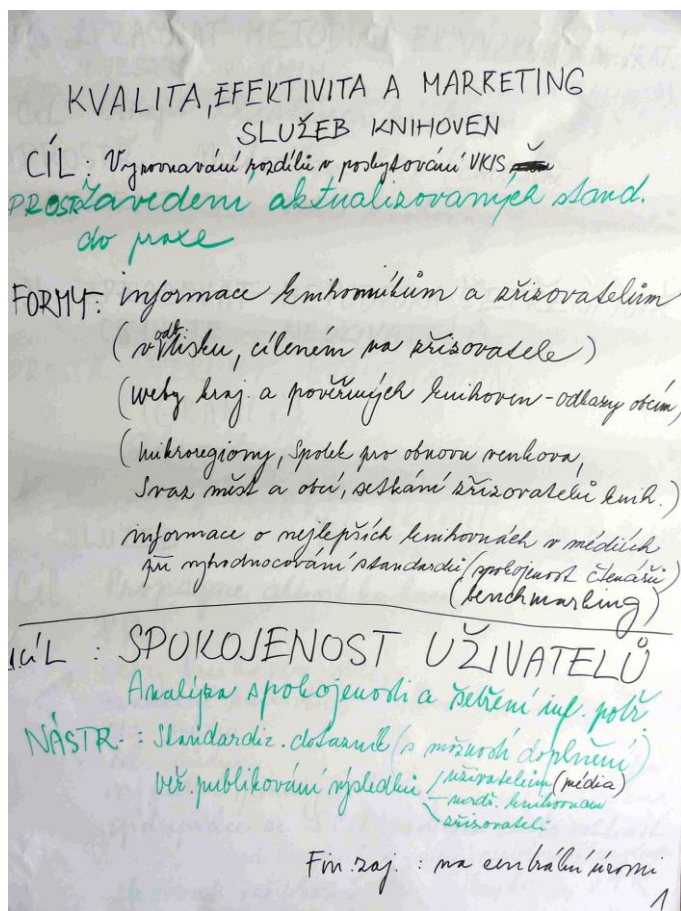 KVALITA, EFEKTIVITA A MARKETING
SLUŽEB KNIHOVEN
CÍL : Vyrovnávání rozdílů v poskytování VKIS
PROSTŘ. Zavedení aktualizovaných stand.
do praxe
FORMY: informace knihovníkům a zřizovatelům
(v odb. tisku, cíleném na zřizovatele)
(weby kraj. a pověřených knihoven - odkazy obcím)
(mikroregiony, Spolek pro obnovu venkova,
Svaz měst a obcí, setkání zřizovatelů knih.)
informace o nejlepších knihovnách v médiích
při vyhodnocování standardů (spokojenost čtenářů)
(benchmarking)
CÍL : SPOKOJENOST UŽIVATELŮ
Analýza spokojenosti a šetření inf. potř.
NÁSTR. : Standardiz. dotazník (s možností doplnění)
Veř. publikování výsledků uživatelům (média)
nadř. knihovnám
zřizovateli
Fin. zaj. : na centrální úrovni
1